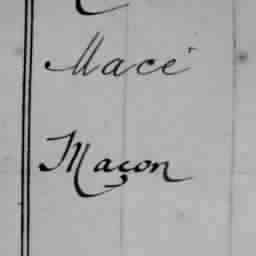 Macé
Maçon